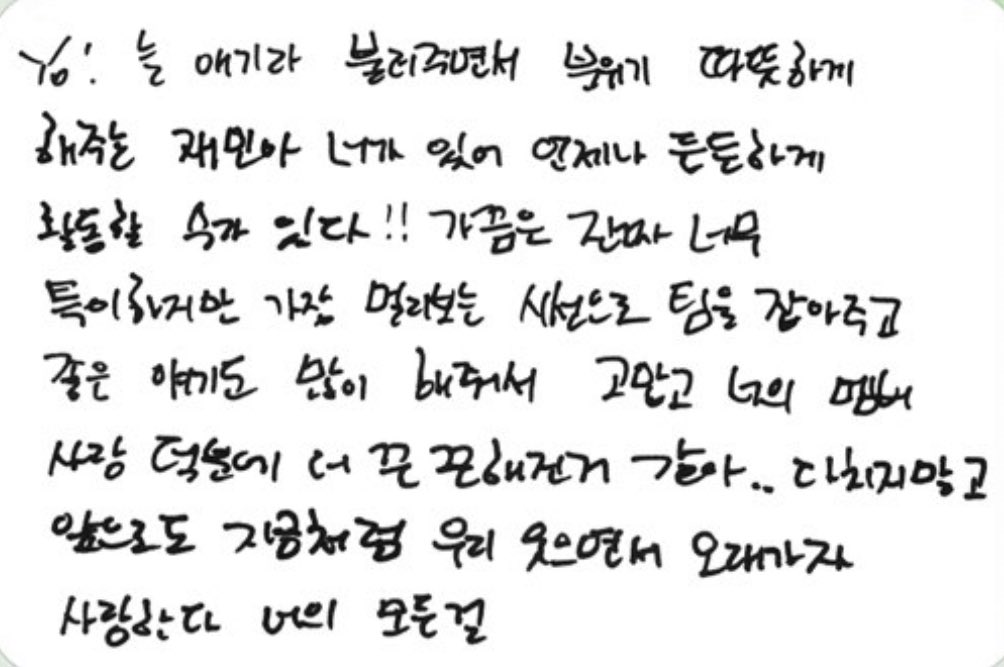 Yo! 늘 애기라 불러주면서 분위기 따뜻하게
해주는 재민아 너가 있어 언제나 든든하게
활동할 수가 있다!! 가끔은 진짜 너무
특이하지만 가장 멀리보는 시선으로 팀을 잡아주고
좋은 얘기도 많이 해줘서 고맙고 너의 멤버
사랑 덕분에 더 끈끈해진거 같아.. 다치지말고
앞으로도 지금처럼 우리 웃으면서 오래가자
사랑한다 너의 모든걸